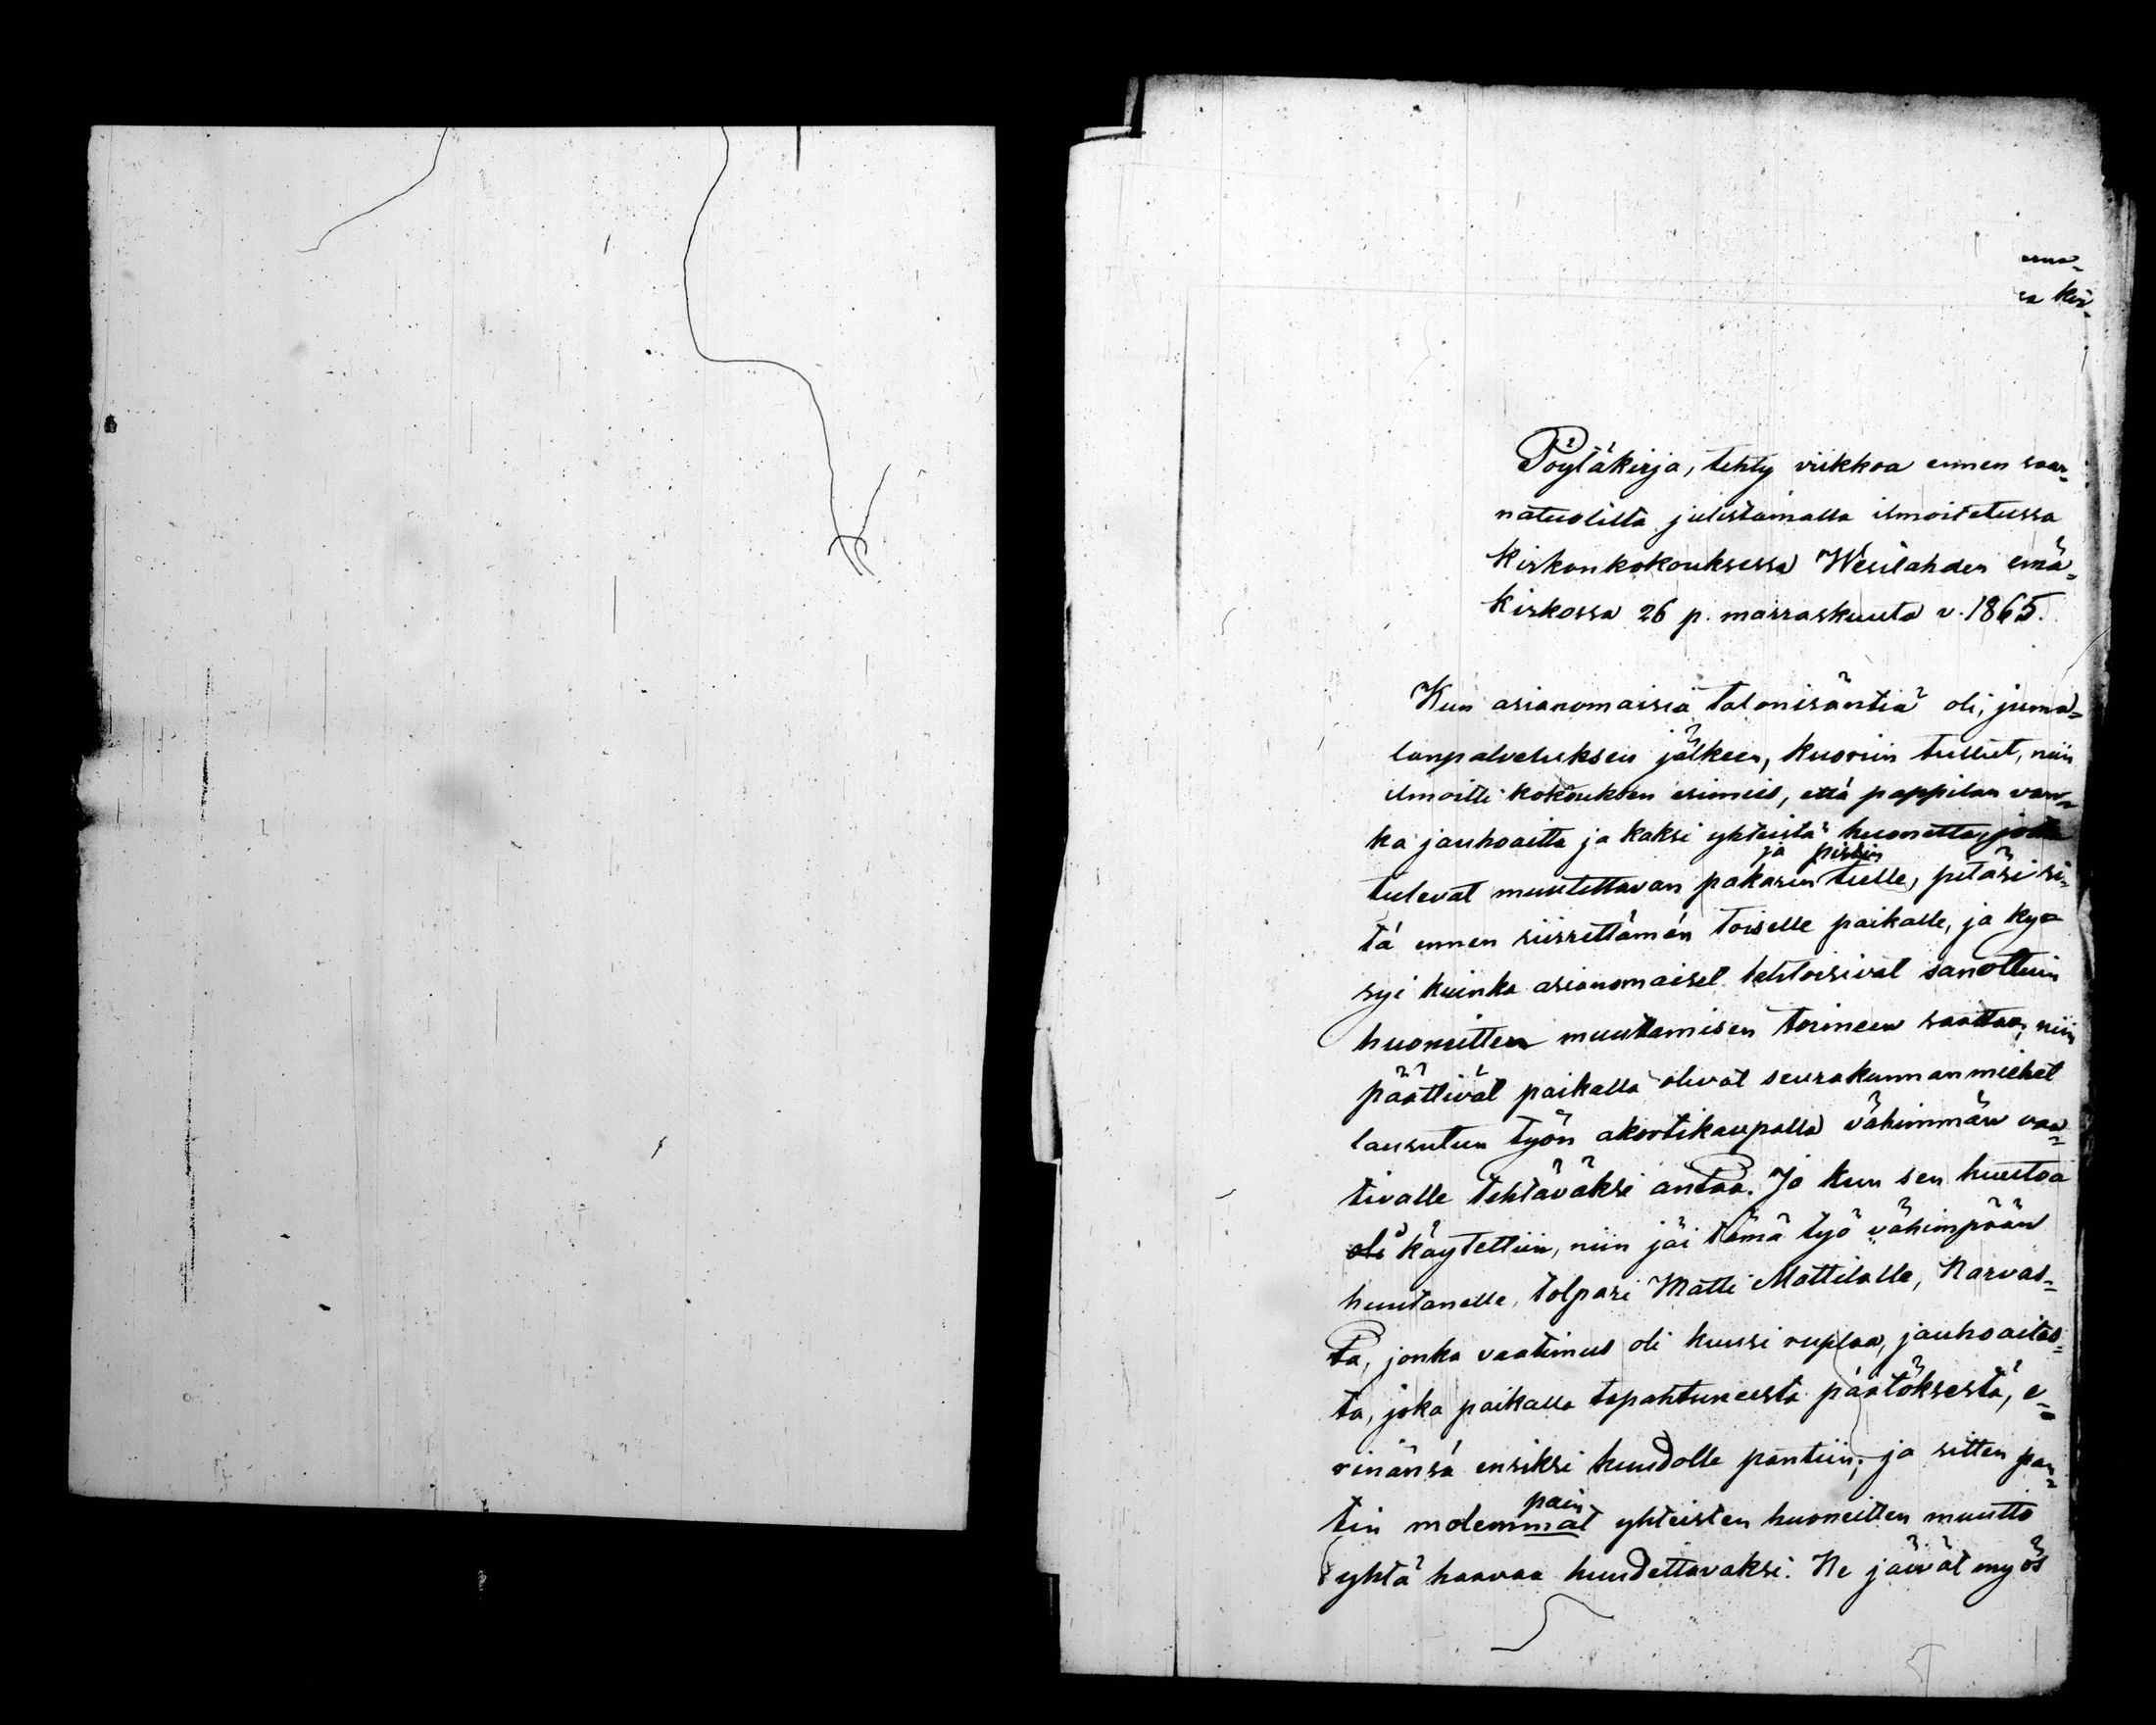 Pöytäkirja, tehty viikkoa ennen saar-
natuolilta julistamalla ilmoitetussa
Kirkonkokouksessa Wesilahden emä-
kirkossa 26 p. marraskuuta v. 1865.
Kun asianomaisia talonisäntiä oli, juma-
lanpalveluksen jälkeen, kuoriin tullut, niin
ilmoitti kokouksen esimies, että pappilan van-
ka jauhoaitta ja kaksi yhteistä huonetta, jotka
ja pirtin
tulevat muutettavan pakarin tielle, pitäisi si-
tä ennen siirrettämän toiselle paikalle, ja ky-
syi kuinka asianomaiset tahtoisivat sanottuin
huoneitten muuttamisen toimeen saattaa; niin
päättivät paikalla olivat seurakunnan miehet
lausutun työn akortikaupalla vähimmän vaa-
tivalle tehtäväksi antaa. Ja kun sen huutoa
oli käytettiin, niin jäi tämä työ vähimpään
huutanelle, tolpari Matti Mattilalle, Narvas-
ta, jonka vaatimus oli kuusi ruplaa, jauhoaitas-
ta, joka paikalla tapahtuneesta päätöksestä, e-
rinänsä ensiksi huudolle pantiin; ja sitten pan-
pain
tin molemmat yhteisten huoneitten muutto
yhtä haavaa huudettavaksi. Ne jäivät myös